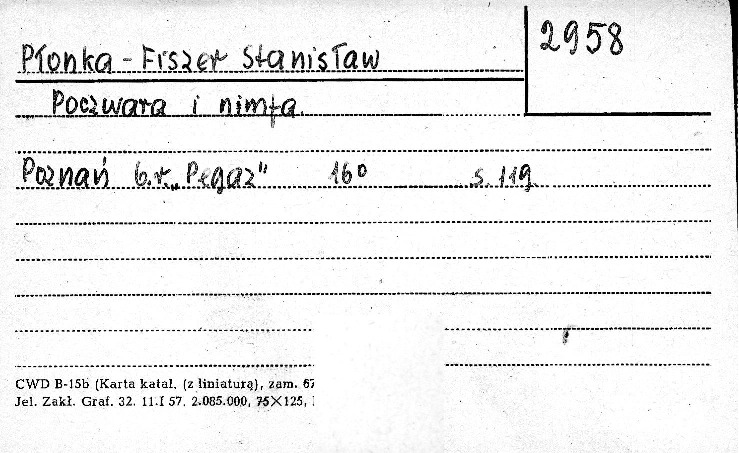 Płonka-Fiszer Stanisław
2958
Poczwara i nimfa.
Poznań b.r. „Pegaz" 16⁰ s. 119
CWD B-15b (Karta katal. (z liniaturą), zam. 67
Jel. Zakł. Graf. 32. 11.I 57. 2.085.000, 75×125,